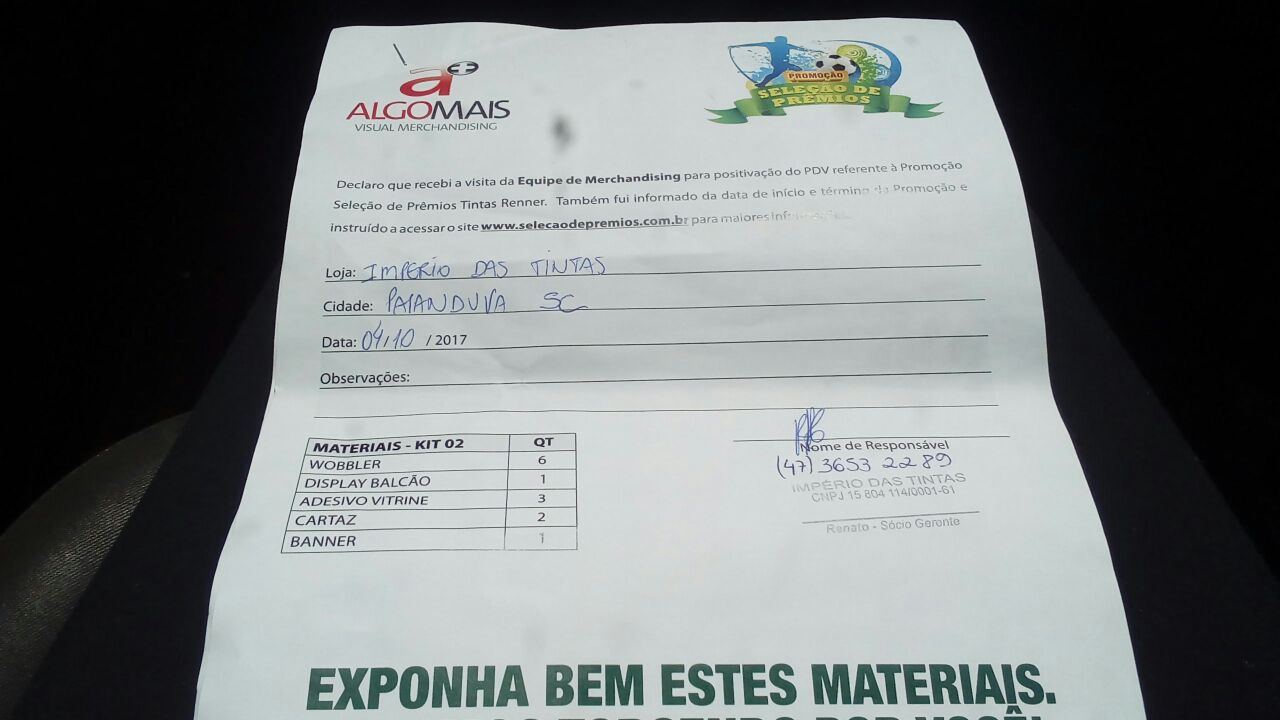 a+
ALGOMAIS
VISUAL MERCHANDISING
PROMOÇÃO
SELEÇÃO DE
PRÊMIOS
Declaro que recebi a visita da Equipe de Merchandising para positivação do PDV referente à Promoção
Seleção de Prêmios Tintas Renner. Também fui informado da data de início e término da Promoção e
instruído a acessar o site www.selecaodepremios.com.br para maiores
Loja: IMPERIO DAS TINTAS
Cidade: PAPANDUVA SC
Data: 04/10 / 2017
Observações:
MATERIAIS - KIT 02 QT
WOBBLER 6
DISPLAY BALCÃO 1
ADESIVO VITRINE 3
CARTAZ 2
BANNER 1
Nome de Responsável
(47) 3653 2289
IMPÉRIO DAS TINTAS
CNPJ 15 804 114/0001-61
Renato - Sócio Gerente
EXPONHA BEM ESTES MATERIAIS.